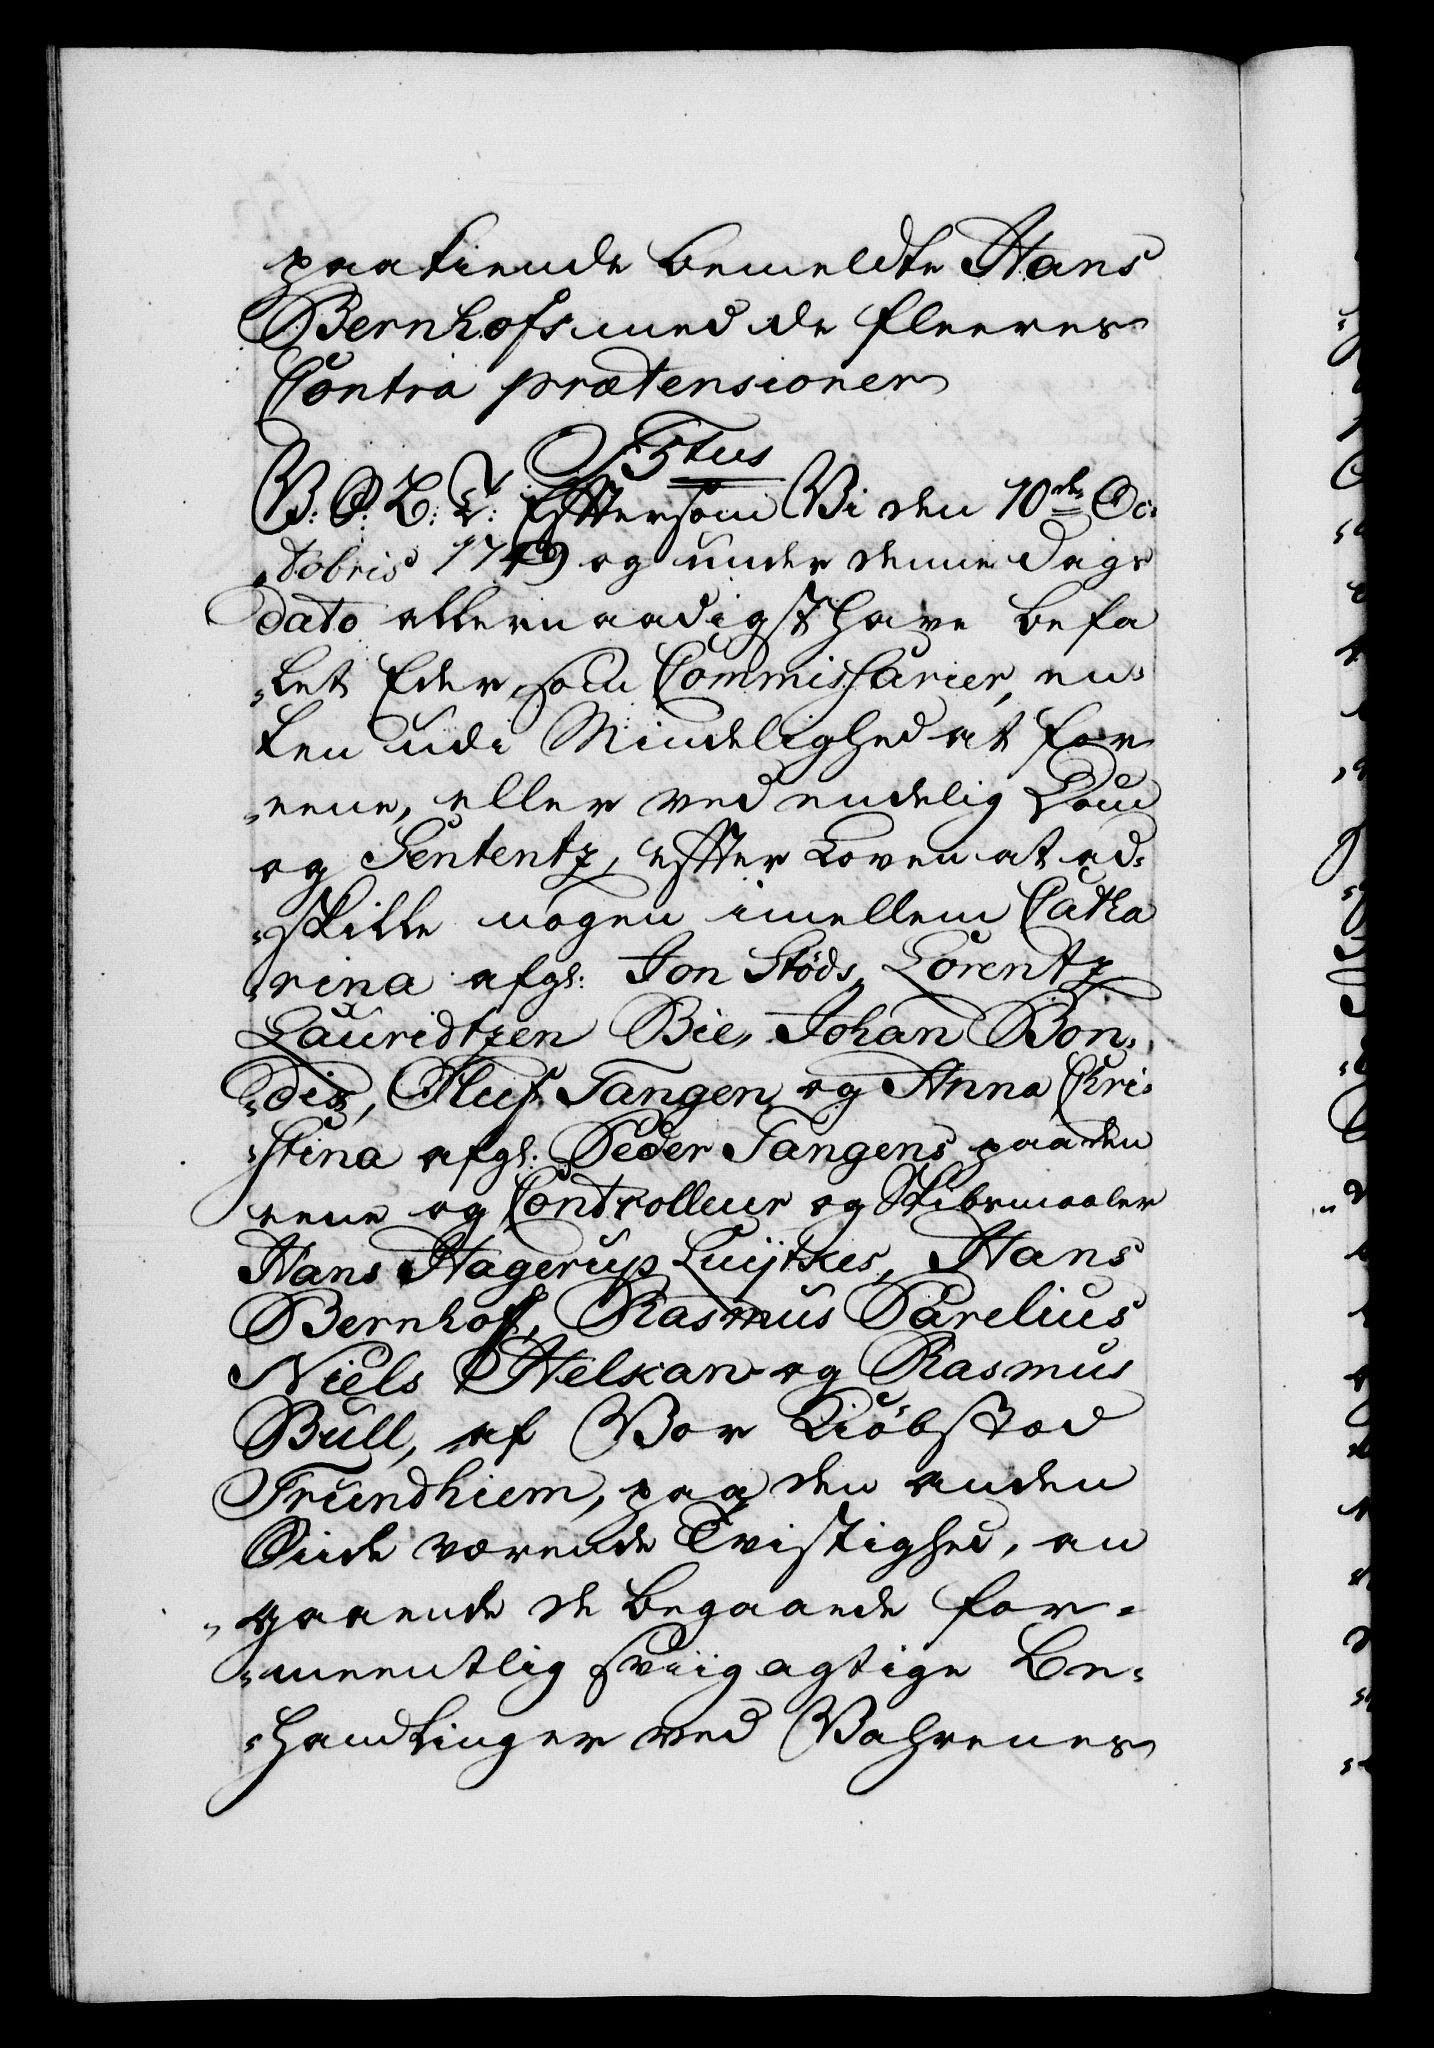 paakiende bemeldte Hans
Bernhofs med de fleeres
Contra prætensioner
F 5tus
V: S: G: T: Effttersom Vi den 10de Oc:
:tobris 1749 og under denne Dags
dato allernaadigst have befa
:let Eder, som Commissarier, en:
ten udi Mindelighed at for
:eene, eller ved endelig Dom
og Sententz, effter Loven at ad:
:skille nogen imellem Catha
:rina afgl: Jon Støds, Lorentz
Lauridtzen Bie, Johan Bon:
:dis, Oluf Tangen og Anna Chri:
:stina afgl: Peder Tangens paa den
eene og Controlleur og Skibsmaaler
Hans Hagerup Luijtkes, Hans
Bernhoff, Rasmus Parelius
Niels Helkan og Rasmus
Bull, af Vor Kiøbstad
Trundhiem, paa den anden
Siide værende Tvistighed, an
:gaaende de begaaede for:
:meentlig sviigagtige Be:
:handlinger ved Vahrenes